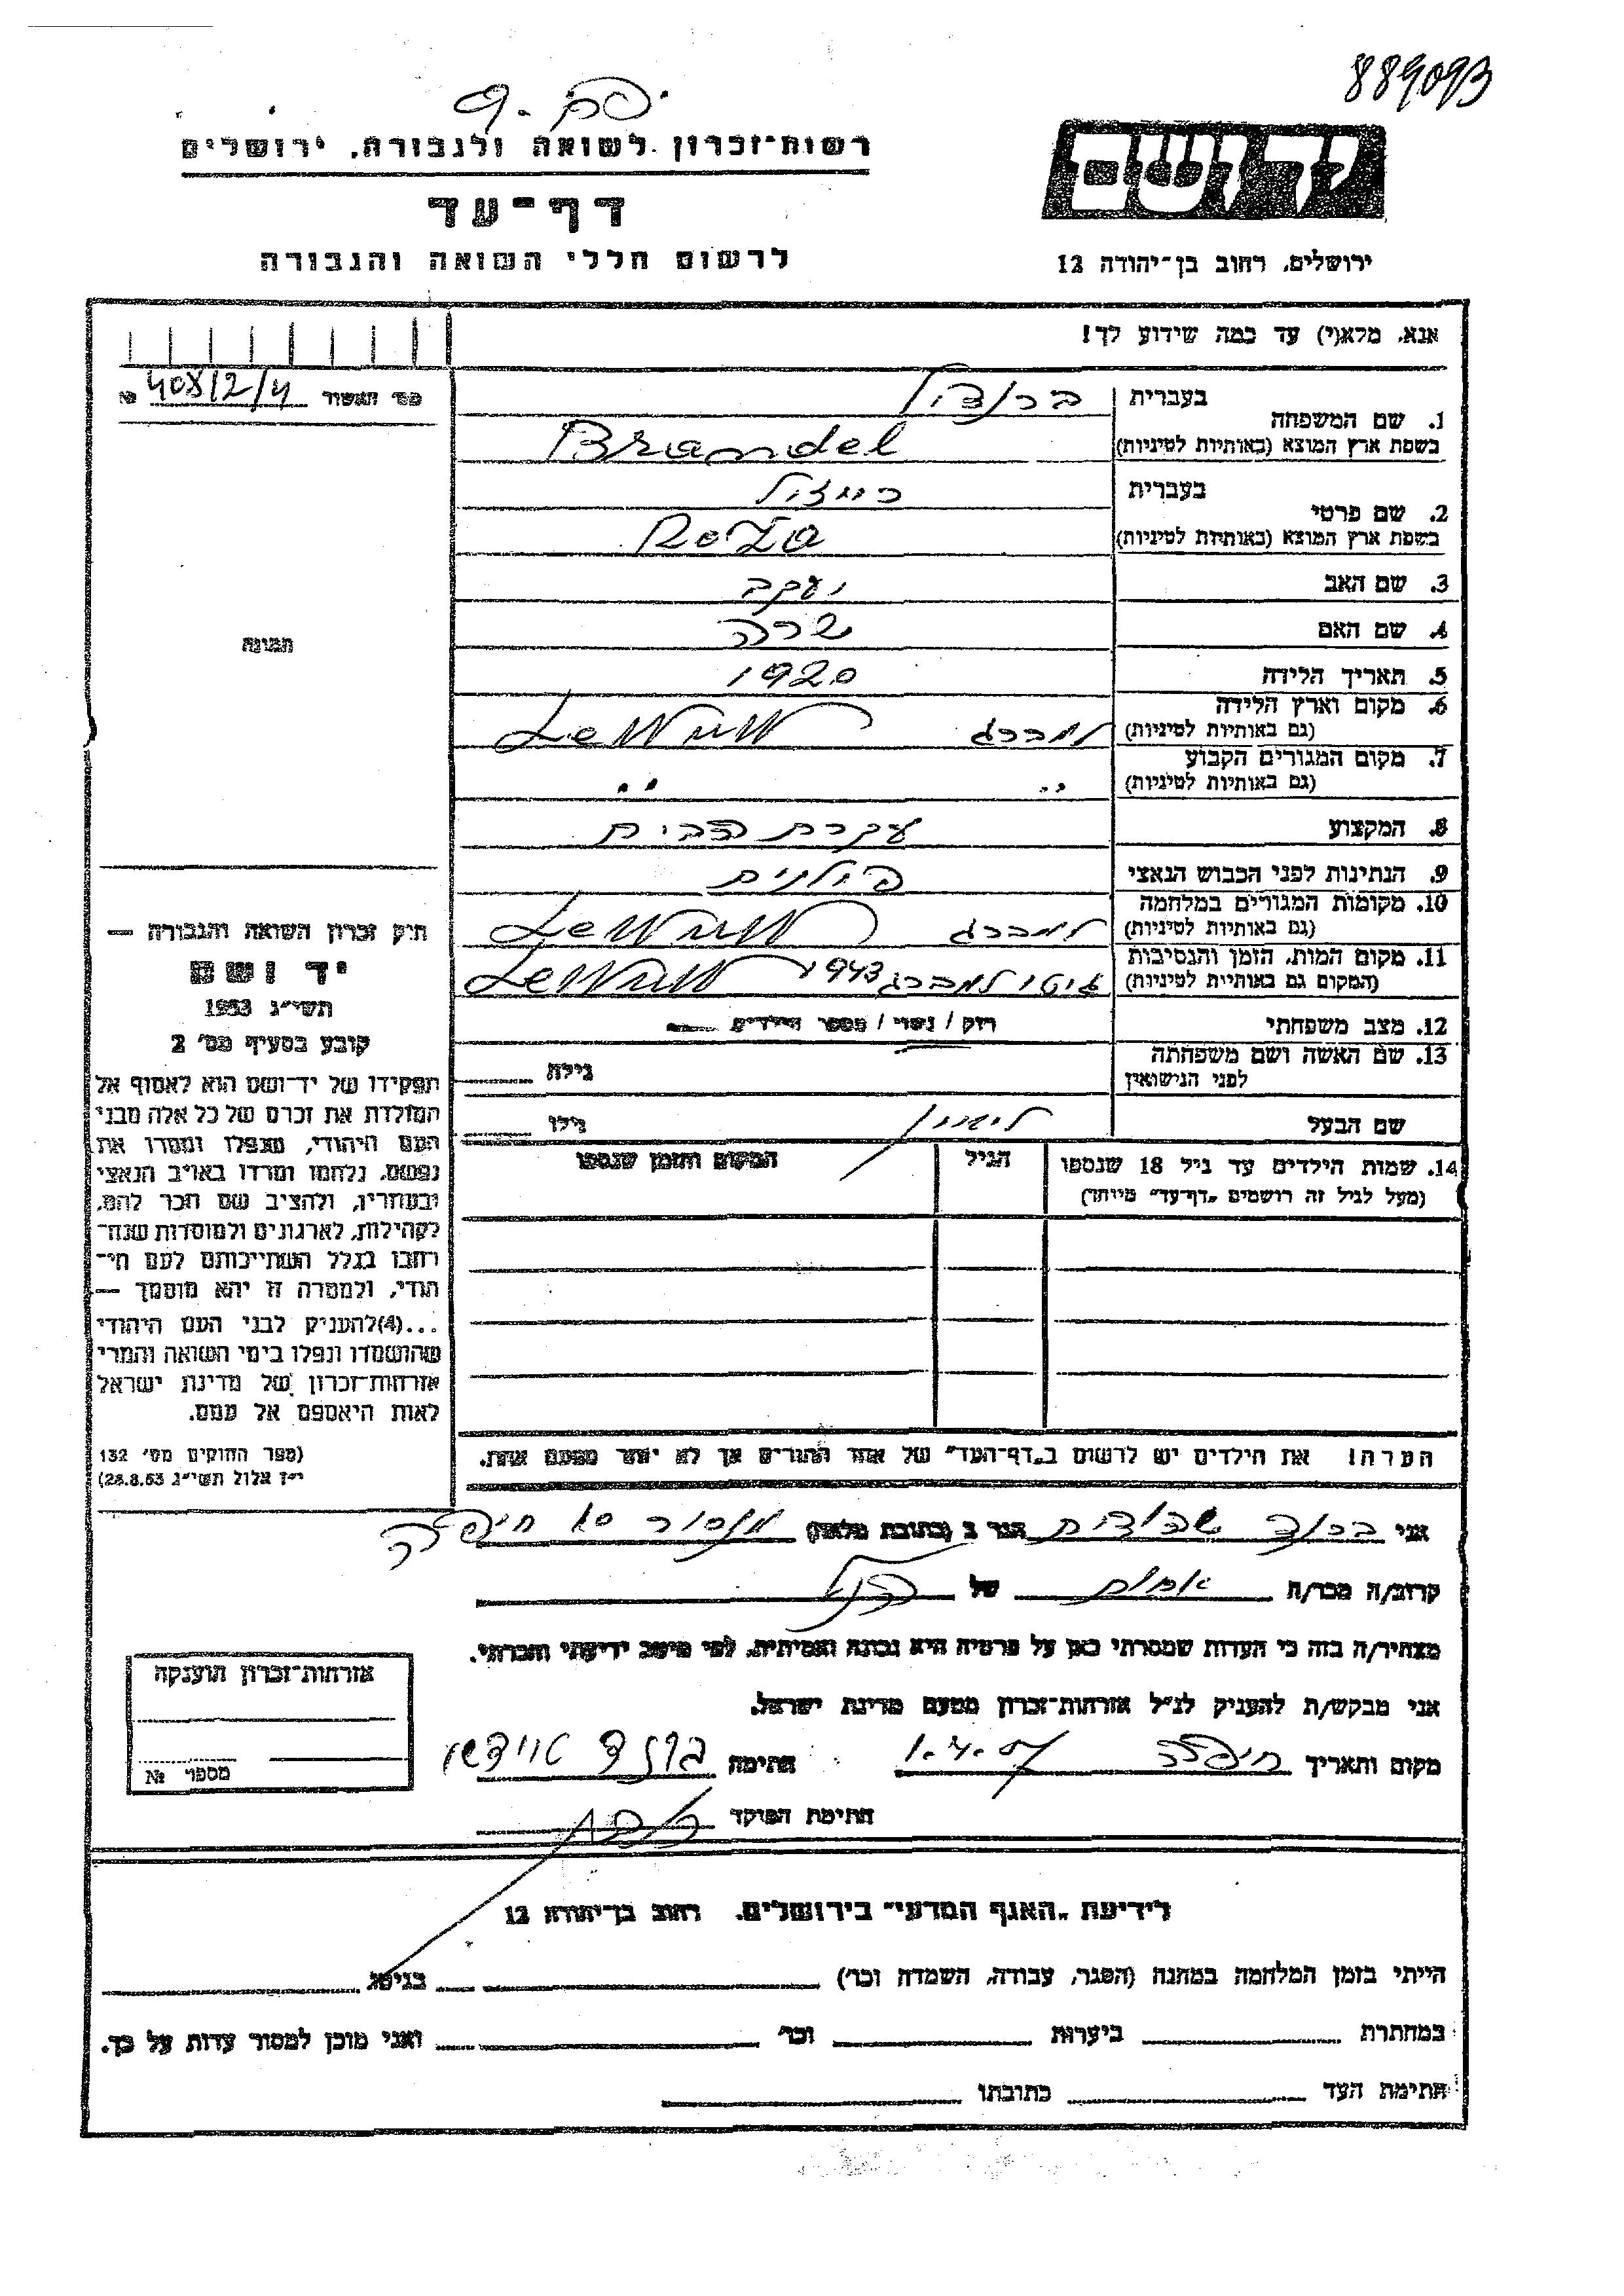 889093
רשות־זכרון לשואה ולגבורה, ירושלים
דף־עד
לרשום חללי השואה והגבורה
יד ושם
ירושלים, רחוב בן־יהודה 12
אנא, מלא(י) עד כמה שידוע לך!
מס׳ האשור № 408/2/4
1. שם המשפחה בעברית ברנדל
בשפת ארץ המוצא (באותיות לטיניות) Brandel
2. שם פרטי בעברית רייזל
בשפת ארץ המוצא (באותיות לטיניות) Roza
3. שם האב יעקב
4. שם האם שרה
5. תאריך הלידה 1920
6. מקום וארץ הלידה (גם באותיות לטיניות) למברג
7. מקום המגורים הקבוע (גם באותיות לטיניות) " "
8. המקצוע עקרת הבית
9. הנתינות לפני הכבוש הנאצי פולנית
10. מקומות המגורים במלחמה (גם באותיות לטיניות) למברג
11. מקום המות, הזמן והנסיבות (המקום גם באותיות לטיניות) גיטו למברג 1943
12. מצב משפחתי רוק / נשוי / מספר הילדים
13. שם האשה ושם משפחתה לפני הנישואין גילה
שם הבעל גילו
14. שמות הילדים עד גיל 18 שנספו הגיל המקום והזמן שנספו
(מעל לגיל זה רושמים „דף־עד" מייוחד)
הערה! את הילדים יש לרשום ב„דף־העד" של אחד ההורים אך לא יותר מפעם אחת.
תמונה
חוק זכרון השואה והגבורה —
יד ושם
תשי״ג 1953
קובע בסעיף מס׳ 2
תפקידו של יד־ושם הוא לאסוף אל
המולדת את זכרם של כל אלה מבני
העם היהודי, שנפלו ומסרו את
נפשם, נלחמו ומרדו באויב הנאצי
ובעוזריו, ולהציב שם וזכר להם,
לקהילות, לארגונים ולמוסדות שנח־
רבו בגלל השתייכותם לעם הי־
הודי, ולמטרה זו יהא מוסמך —
...(4)להעניק לבני העם היהודי
שהושמדו ונפלו בימי השואה והמרי
אזרחות־זכרון של מדינת ישראל
לאות היאספם אל עמם.
(ספר החוקים מס׳ 132
י״ז אלול תשי״ג 28.8.53)
אני יהודית הגר ב (כתובת מלאה) חיפה
קרוב/ה מכר/ה אחות של הנ״ל
מצהיר/ה בזה כי העדות שמסרתי כאן על פרטיה היא נכונה ואמיתית, לפי מיטב ידיעתי והכרתי.
אני מבקש/ת להעניק לנ״ל אזרחות־זכרון מטעם מדינת ישראל.
מקום ותאריך חיפה חתימה
חתימת הפוקד
אזרחות־זכרון הוענקה
מספר №
לידיעת „האגף המדעי" בירושלים, רחוב בן־יהודה 12
הייתי בזמן המלחמה במחנה (הסגר, עבודה, השמדה וכו׳) בגיטו
במחתרת ביערות וכו׳ ואני מוכן למסור עדות על כך.
חתימת העד כתובתו